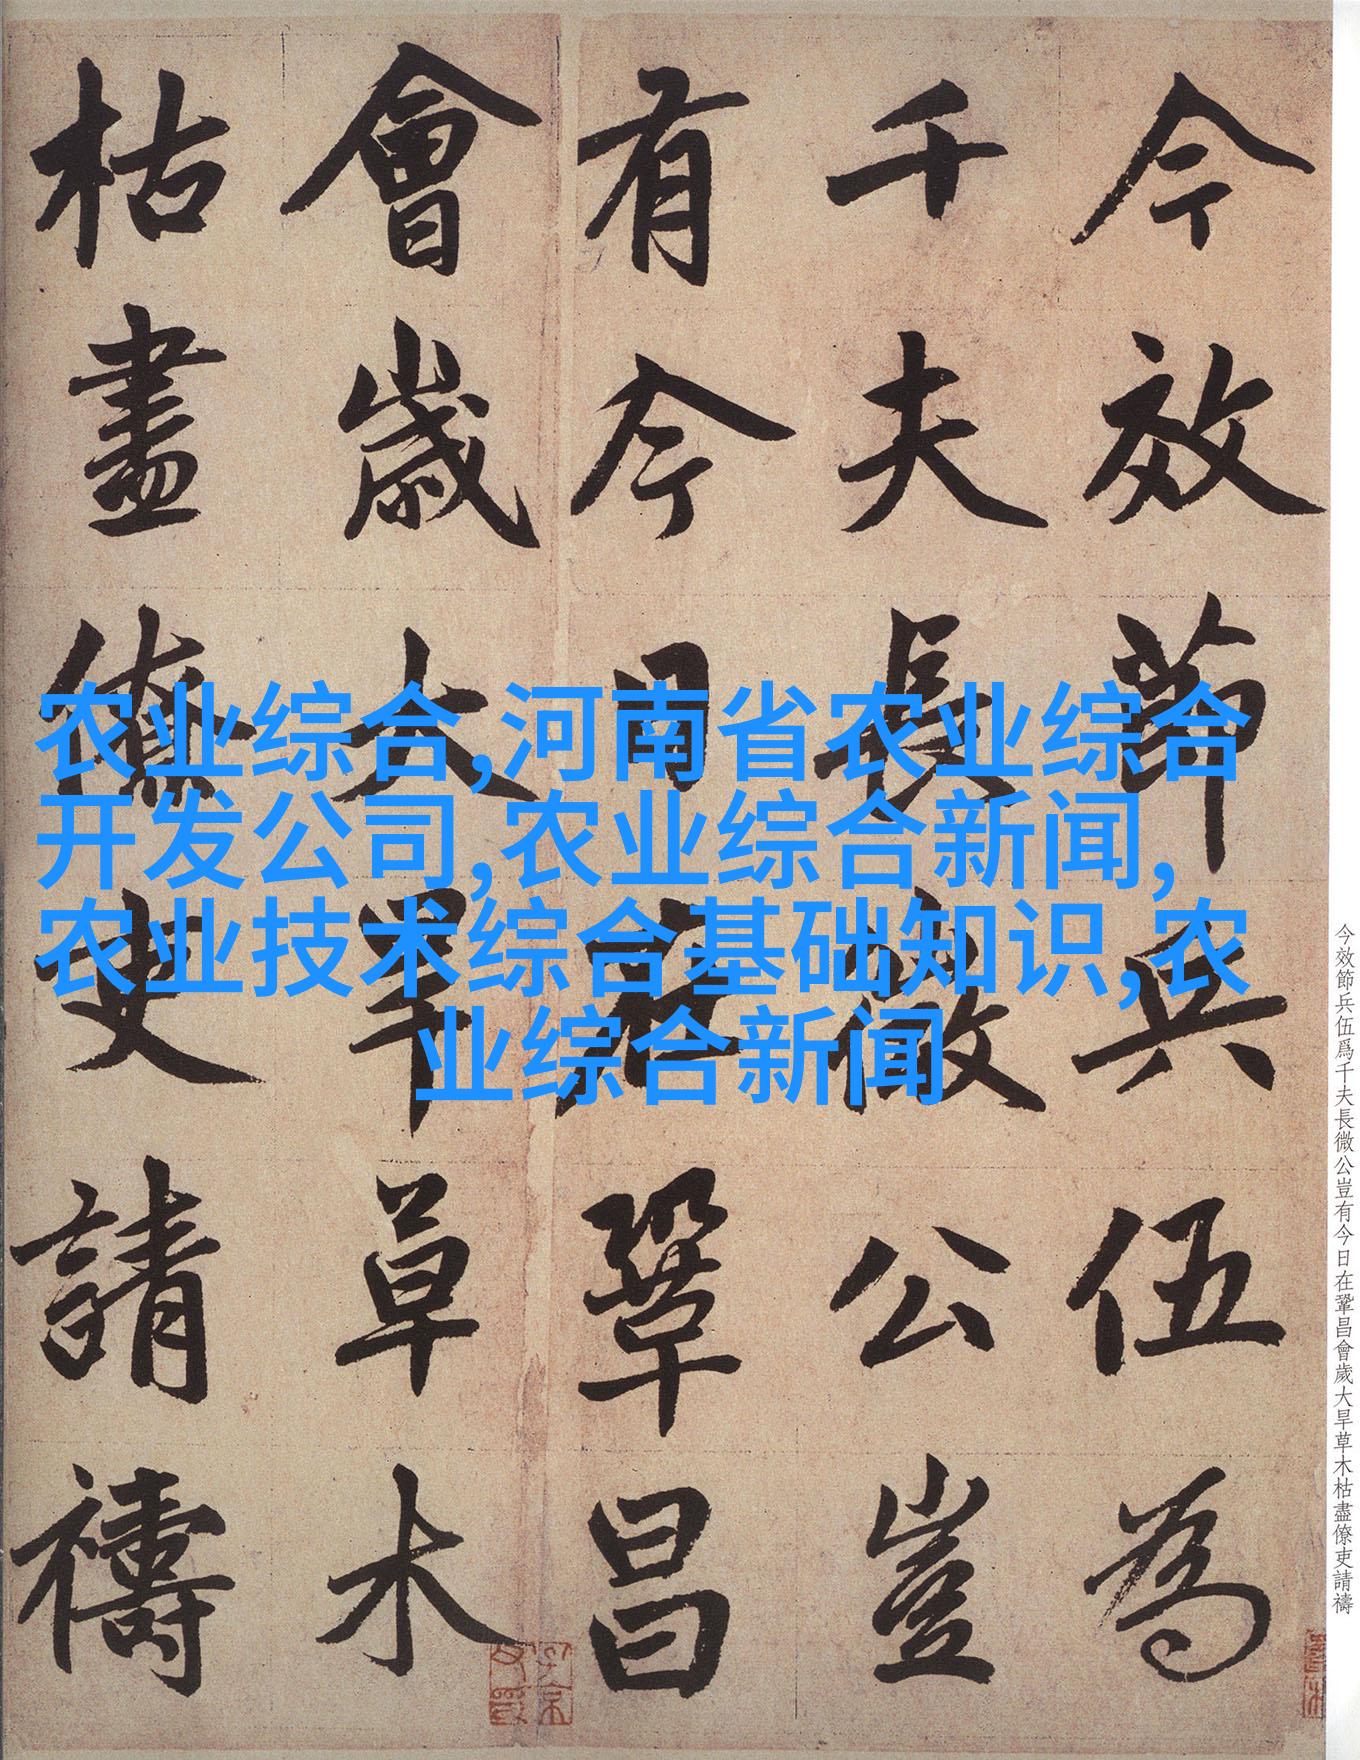 今效節兵伍為
千夫長微公豈
有今日在鞏昌
會歲大旱草木
枯盡僚吏請禱
今效節兵伍爲千夫長微公豈有今日在鞏昌會歲大旱草木枯盡僚吏請禱
农业综合,河南省农业综合
开发公司,农业综合新闻,
农业技术综合基础知识,农
业综合新闻